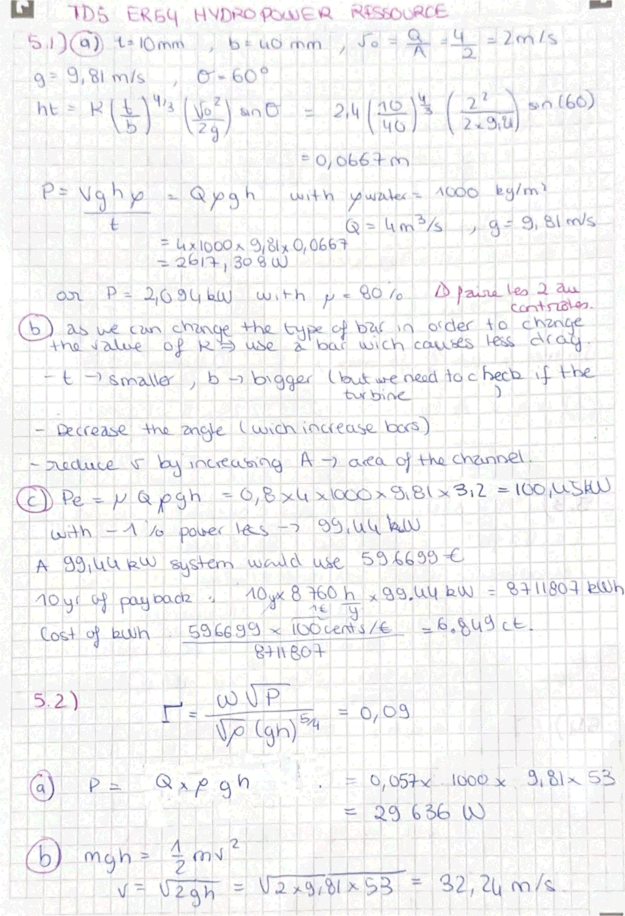 TD5 ER54 HYDROPOWER RESSOURCE
5.1) a) t=10mm , b=40 mm , v0 = Q/A = 4/2 = 2m/s
g = 9,81 m/s , θ = 60°
ht = K (t/b)^4/3 (v0²/2g) sin θ = 2,4 (10/40)^4/3 (2²/2×9,81) sin(60)
= 0,0667m
P = Vghρ/t = Qρgh with ρwater = 1000 kg/m³
Q = 4m³/s , g = 9,81 m/s
= 4×1000×9,81×0,0667
= 2617,308W
or P = 2,094kW with μ = 80% faire les 2 au
contrôles.
b) as we can change the type of bar in order to change
the value of K ⇒ use a bar wich causes less drag.
- t → smaller , b → bigger (but we need to check if the
turbine )
- Decrease the angle (wich increase bars)
- reduce v by increasing A → area of the channel.
c) Pe = μ Q ρgh = 0,8×4×1000×9,81×3,2 = 100,45kW
with -1% power less → 99,44 kW
A 99,44 kW system would use 596699 €
10 yr of payback : 10y × 8760 h/y × 99.44 kW = 8711807 kWh
Cost of kWh 596699 × 100cents/1€ / 8711807 = 6.849 ct.
5.2) Γ = ω√P / √ρ (gh)^5/4 = 0,09
a) P = Q×ρ gh = 0,057× 1000 × 9,81× 53
= 29 636 W
b) mgh = 1/2 mv²
v = √2gh = √2×9,81×53 = 32,24 m/s.